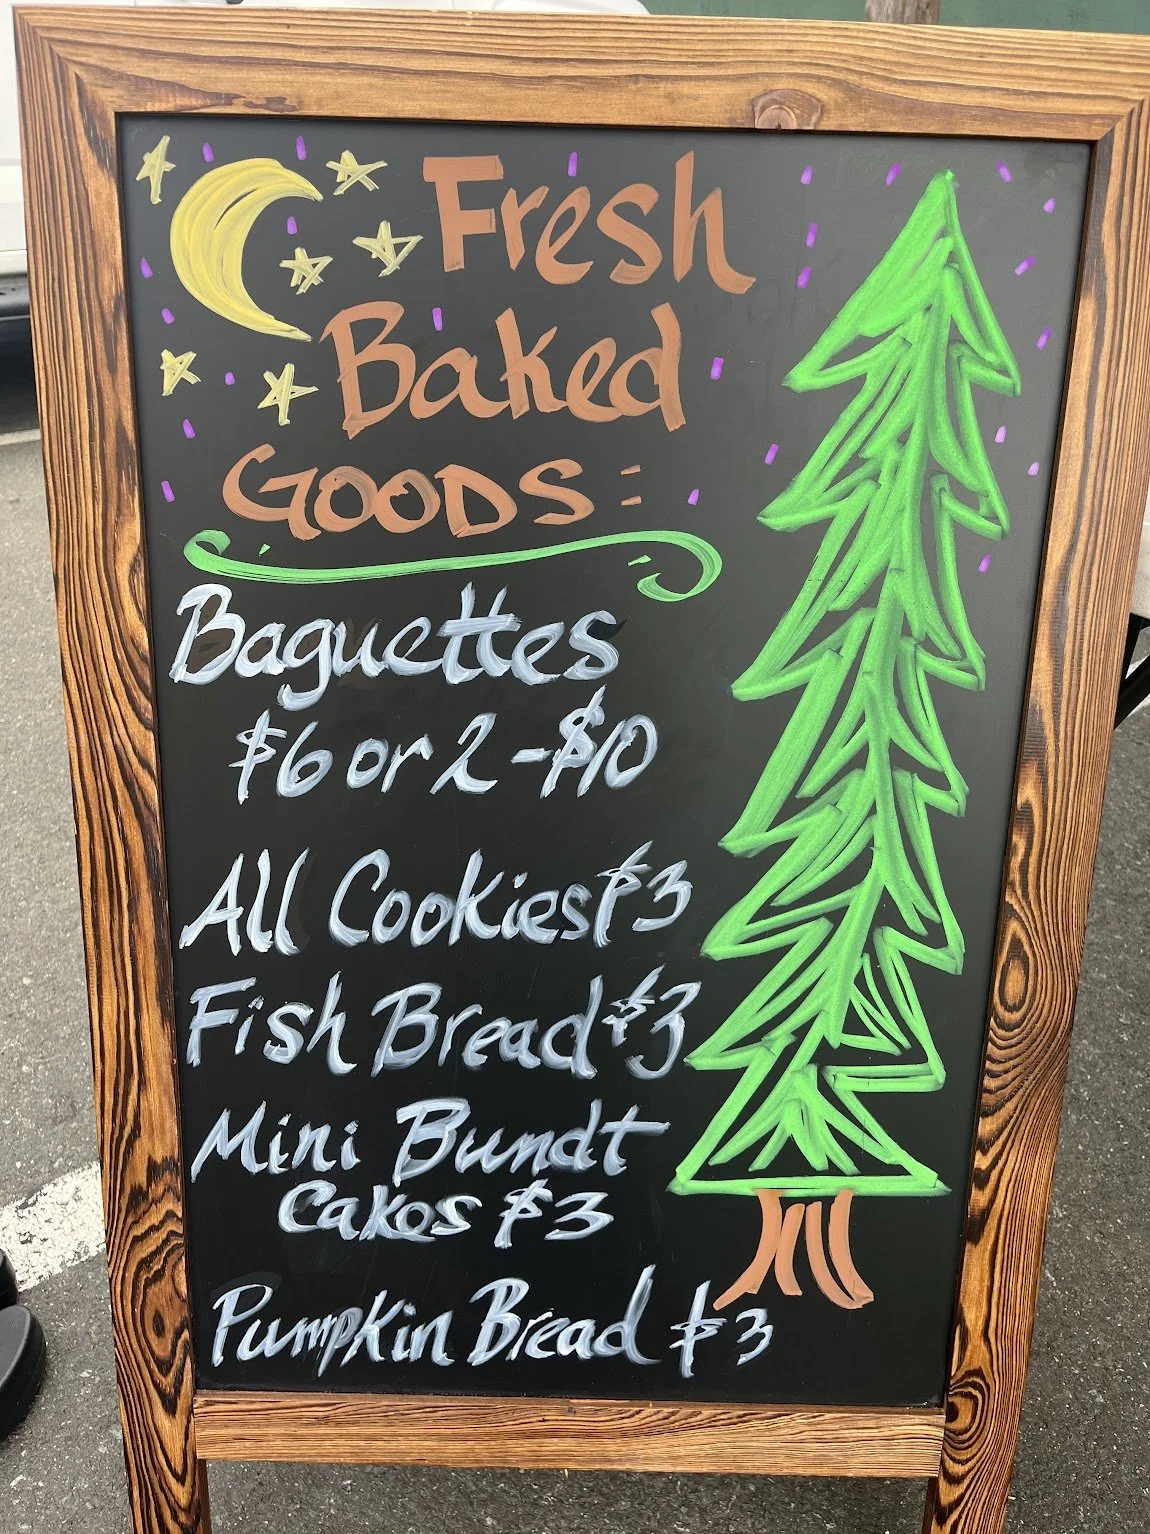 Fresh
Baked
GOODS:
Baguettes
$6 or 2 - $10
All Cookies $3
Fish Bread $3
Mini Bundt
Cakes $3
Pumpkin Bread $3